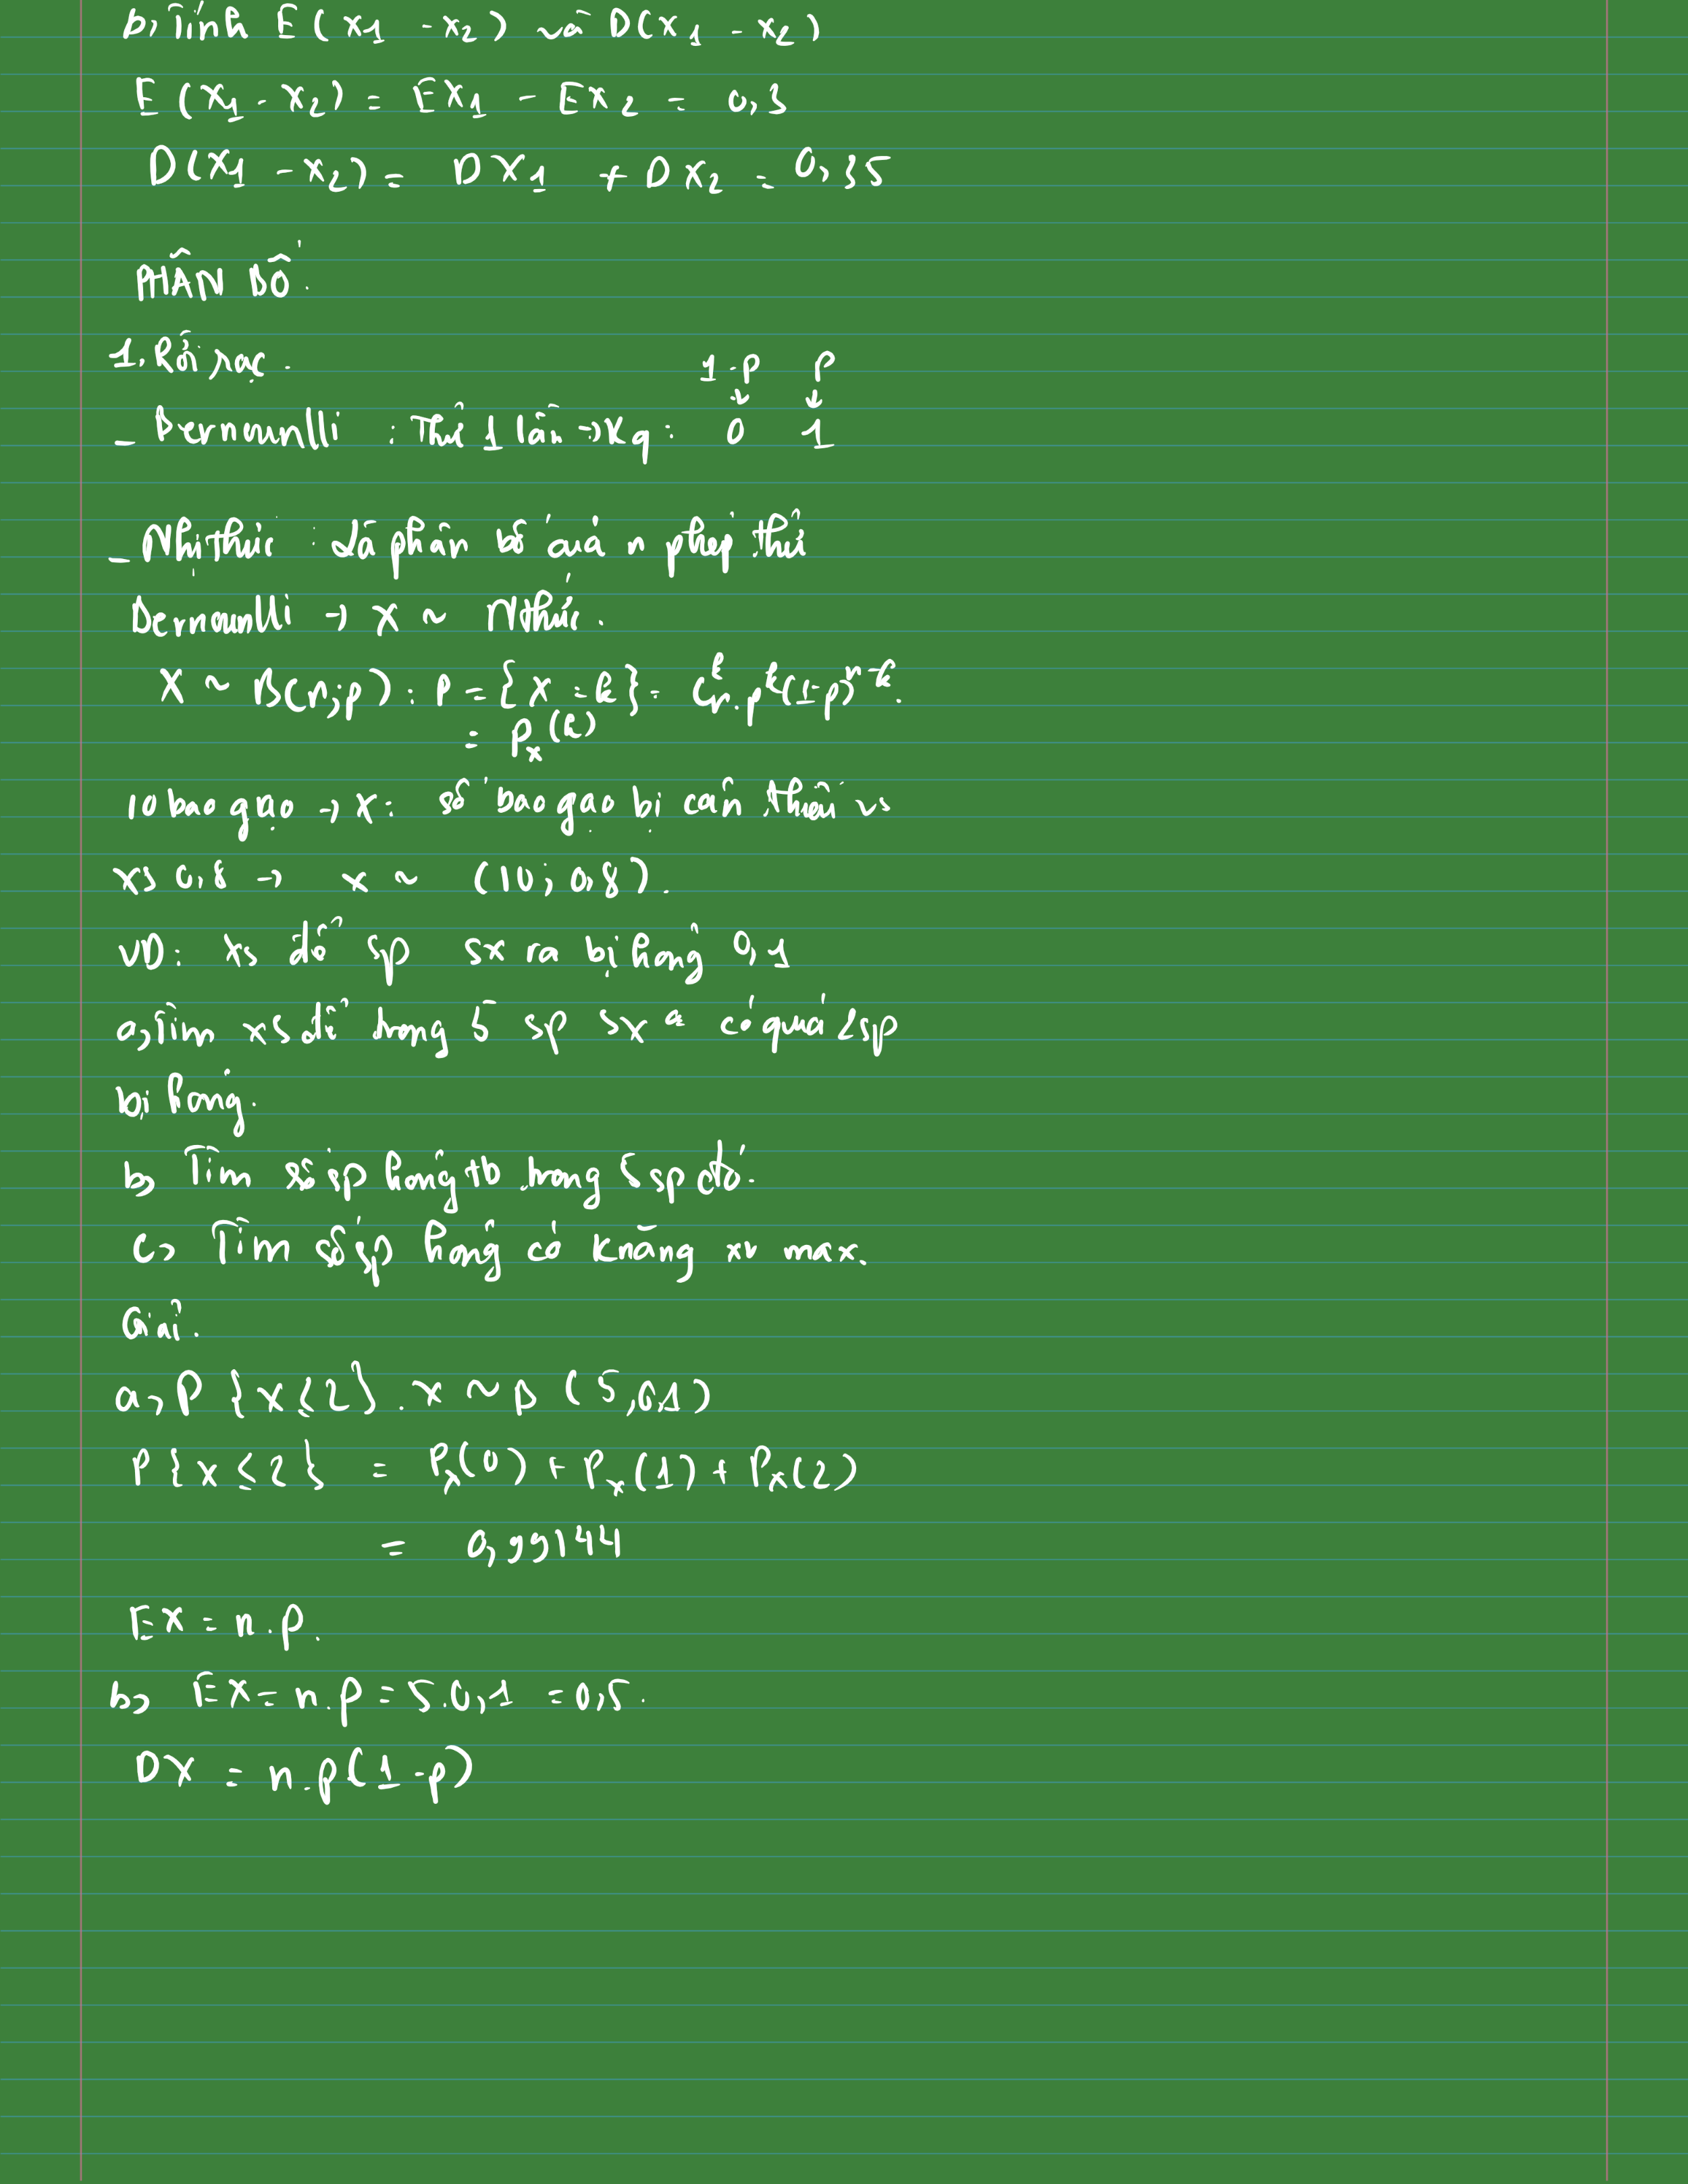 b, Tính E(X1 - X2) và D(X1 - X2)
E(X1 - X2) = EX1 - EX2 = 0,3
D(X1 - X2) = DX1 + DX2 = 0,35
PHÂN BỐ.
1. Rời rạc.
1-p p
↓ ↓
_ Bernoulli : Thử 1 lần → Kq: 0 1
_ Nhị thức : Là phân bố của n phép thử
Bernoulli → X ~ Nthức.
X ~ B(n;p) : P = {X = k} = C_n^k . p^k (1-p)^{n-k}.
= P_x(k)
10 bao gạo → X: số bao gạo bị cân thiếu vs
xs 0,8 → X ~ (10; 0,8).
VD: xs để sp sx ra bị hỏng 0,1
a, Tìm xs để trong 5 sp sx có quá 2 sp
bị hỏng.
b, Tìm số sp hỏng tb trong 5 sp đó.
c, Tìm số sp hỏng có knăng xr max.
Giải.
a, P{X≤2}. X ~ B(5,0,1)
P{X ≤ 2} = P_x(0) + P_x(1) + P_x(2)
= 0,99144
EX = n.p.
b, EX = n.p = 5.0,1 = 0,5.
DX = n.p(1-p)